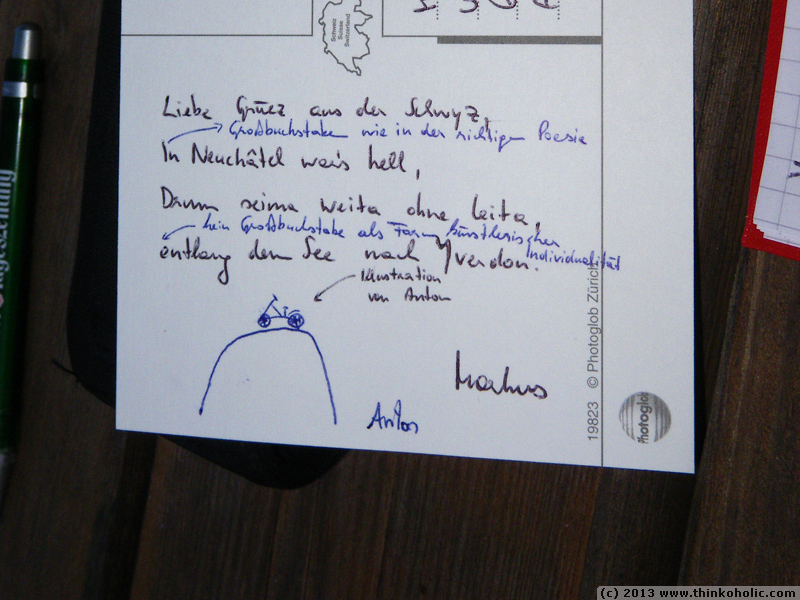 Schweiz
Suisse
Switzerland
Liebe Grüez aus der Schwyz,
Großbuchstabe wie in der richtigen Poesie
In Neuchâtel war's hell,
Darum seima weita ohne Leita,
kein Großbuchstabe als Form künstlerischer Individualität
entlang dem See nach Yverdon.
Illustration
von Anton
Markus
Anton
19823 © Photoglob Zürich
Photoglob
(c) 2013 www.thinkoholic.com